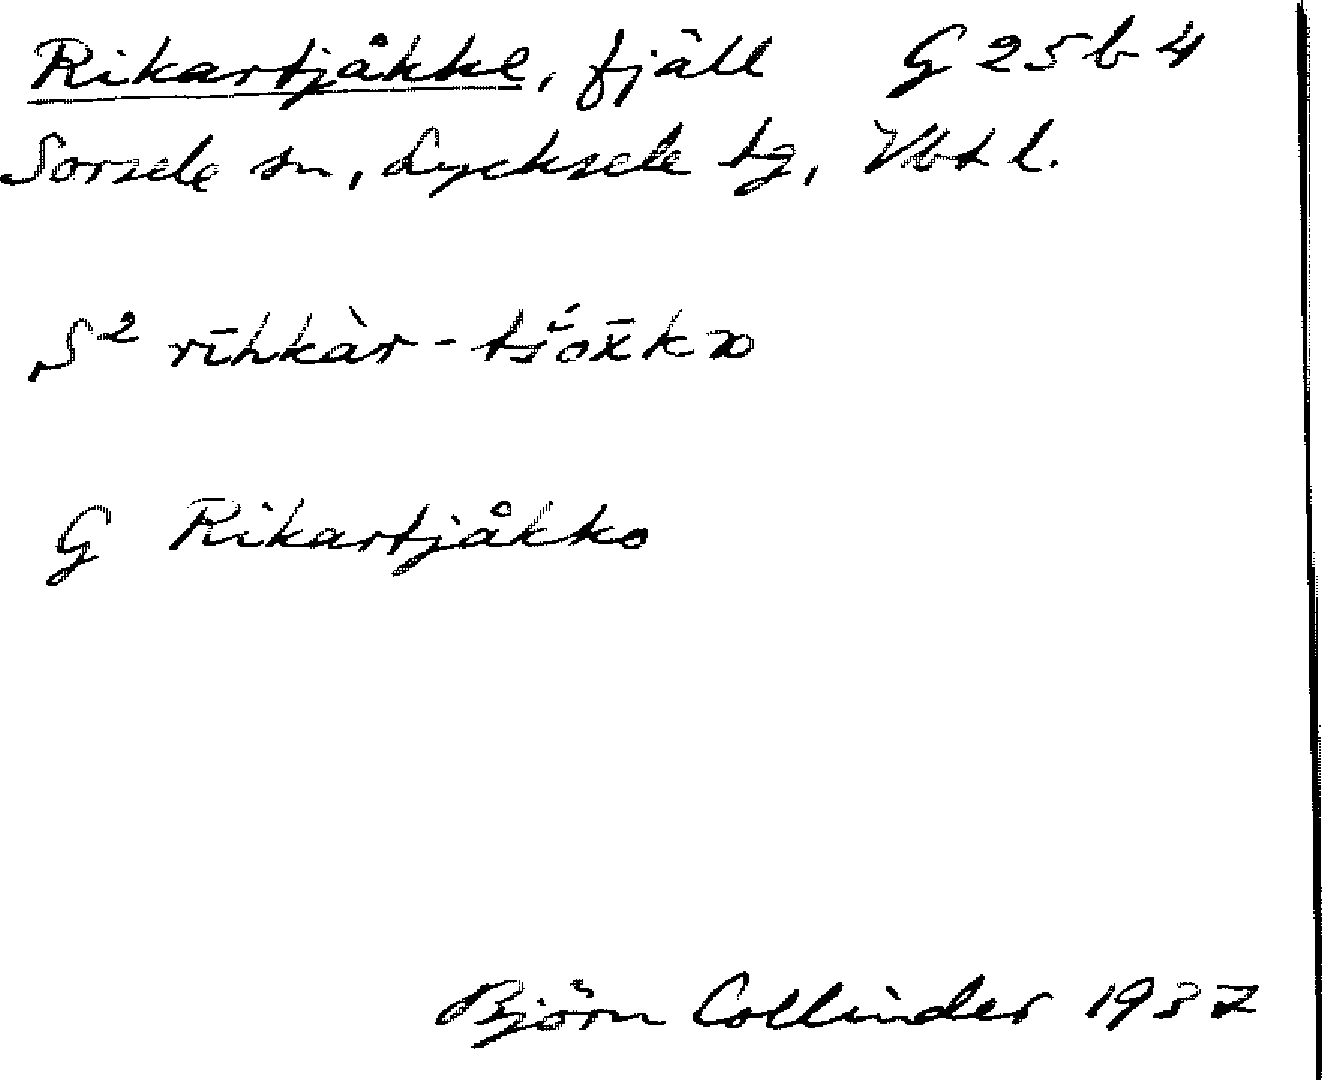 Rikartjåkke, fjäll G 25 b 4
Sorsele sn, Lycksele tg, Vbt l.
S² rīhkàr-
G Rikartjåkko
Björn Collinder 1937